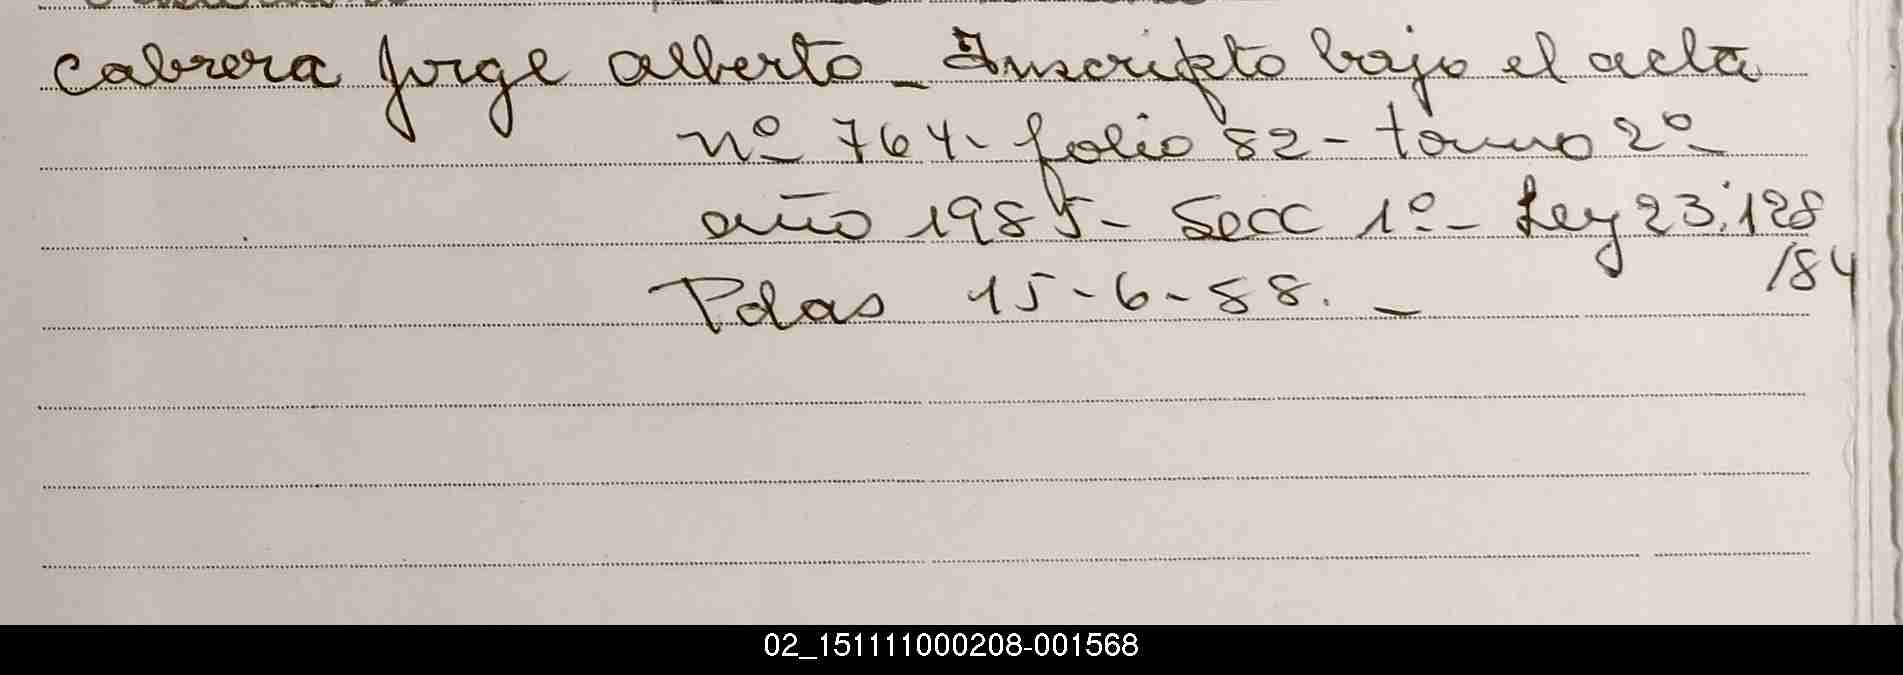 Cabrera Jorge Alberto - Inscripto bajo el acta
nº 764- folio 82 - tomo 2º
año 1985 - Secc 1º - Ley 23.128
/84
Pdas 15-6-88. -
02_151111000208-001568